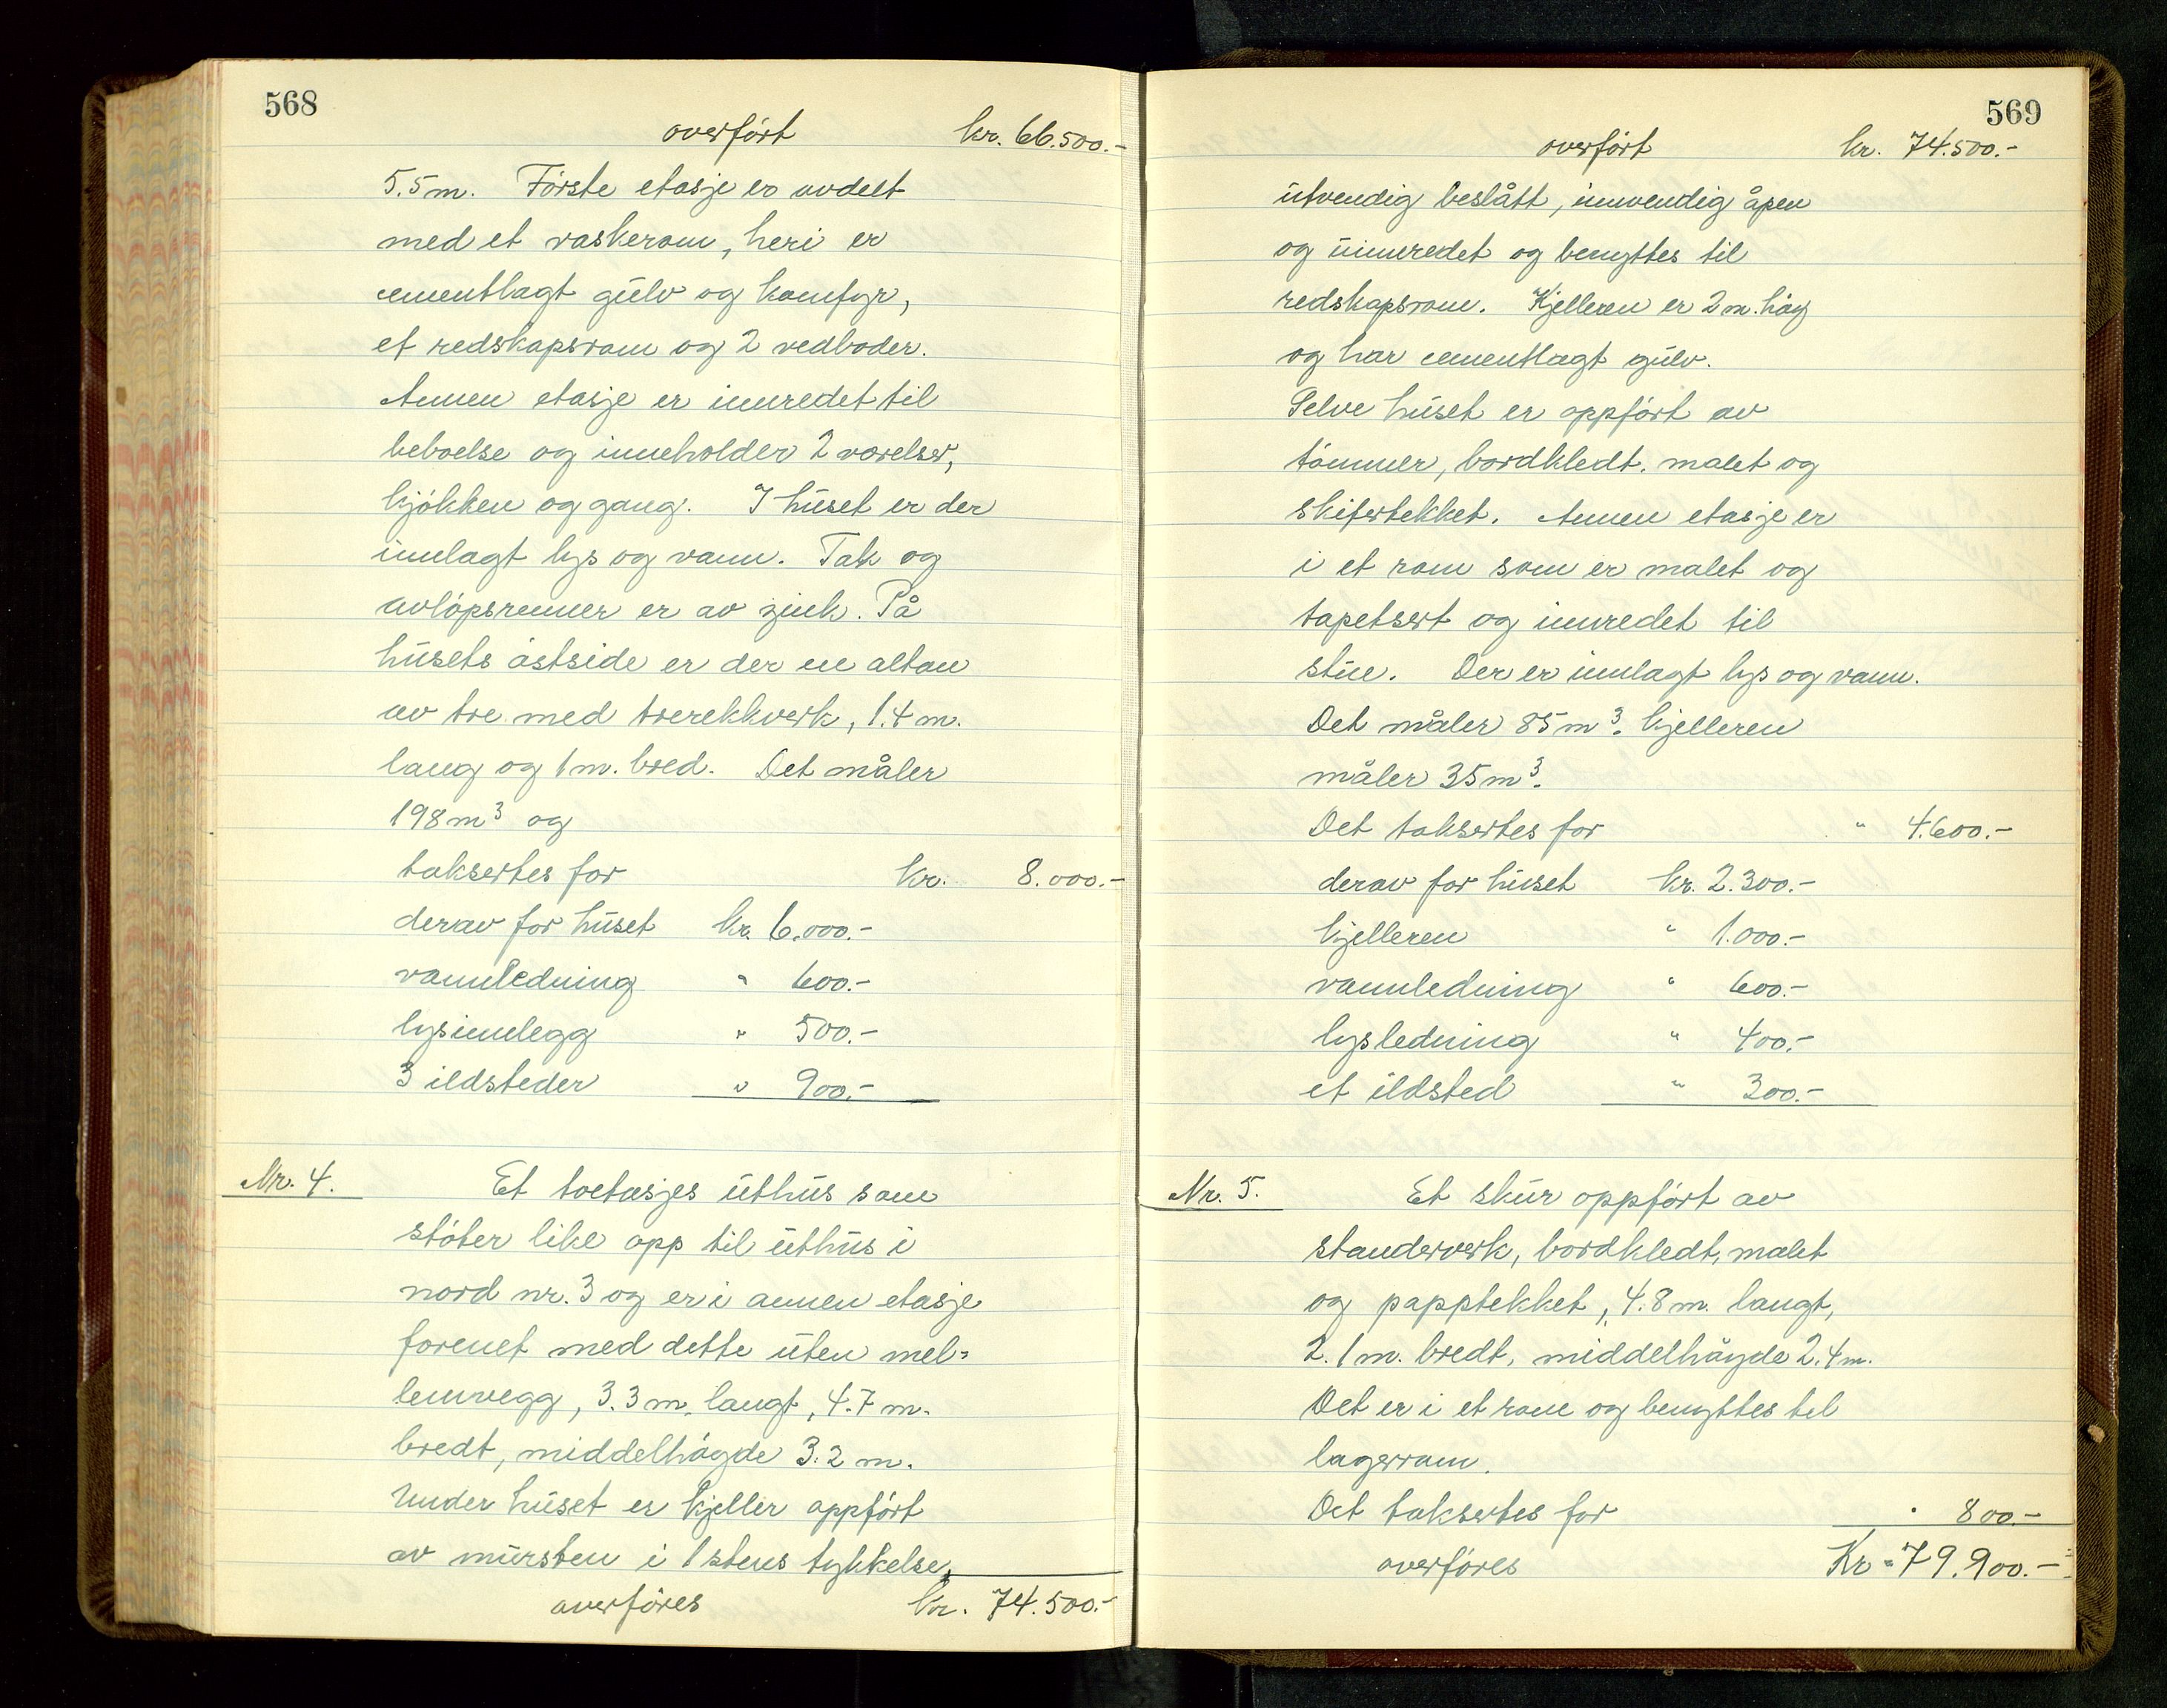 568
overført kr. 66.500.-
5.5 m. Første etasje er avdelt
med et vaskerom, heri er
cementlagt gulv og komfyr,
et redskapsrom og 2 vedboder.
Annen etasje er innredet til
beboelse og inneholder 2 værelser,
kjøkken og gang. I huset er der
innlagt lys og vann. Tak og
avløpsrenner er av zink. På
husets østside er der en altan
av tre med trerekkverk, 1.4 m.
lang og 1 m. bred. Det måler
198 m³ og
taksertes for kr. 8.000.-
derav for huset kr. 6.000.-
vannledning " 600.-
lysinnlegg " 500.-
3 ildsteder " 900.-
Nr. 4. Et toetasjes uthus som
støter like opp til uthus i
nord nr. 3 og er i annen etasje
forenet med dette uten mel=
lemvegg, 3.3 m. langt, 4.7 m.
bredt, middelhøyde 3.2 m.
Under huset er kjeller oppført
av mursten i 1 stens tykkelse,
overføres kr. 74.500.-
569
overført kr. 74.500.-
utvendig beslått, innvendig åpen
og uinnredet og benyttes til
redskapsrom. Kjelleren er 2 m. høy
og har cementlagt gulv.
Selve huset er oppført av
tømmer, bordkledt, malet og
skifertekket. Annen etasje er
i et rom som er malet og
tapetsert og innredet til
stue. Der er innlagt lys og vann.
Det måler 85 m³. kjelleren
måler 35 m³.
Det taksertes for " 4.600.-
derav for huset kr. 2.300.-
kjelleren " 1.000.-
vannledning " 600.-
lysledning " 400.-
et ildsted " 300.-
Nr. 5. Et skur oppført av
stenderverk, bordkledt, malet
og papptekket, 4.8 m. langt,
2.1 m. bredt, middelhøyde 2.4 m.
Det er i et rom og benyttes til
lagerrom.
Det taksertes for " 800.-
overføres Kr. 79.900.-